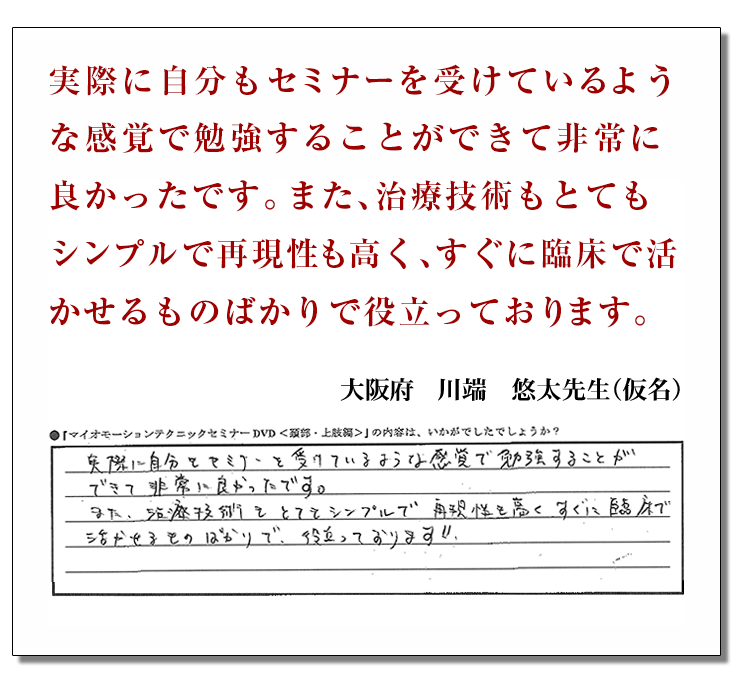 実際に自分もセミナーを受けているよう
な感覚で勉強することができて非常に
良かったです。また、治療技術もとても
シンプルで再現性も高く、すぐに臨床で活
かせるものばかりで役立っております。
大阪府　川端　悠太先生（仮名）
●『マイオモーションテクニックセミナーDVD＜頚部・上肢編＞』の内容は、いかがでしたでしょうか？
実際に自分もセミナーを受けているような感覚で勉強することが
できて非常に良かったです。
また、治療技術もとてもシンプルで再現性も高くすぐに臨床で
活かせるものばかりで、役立っております!!.